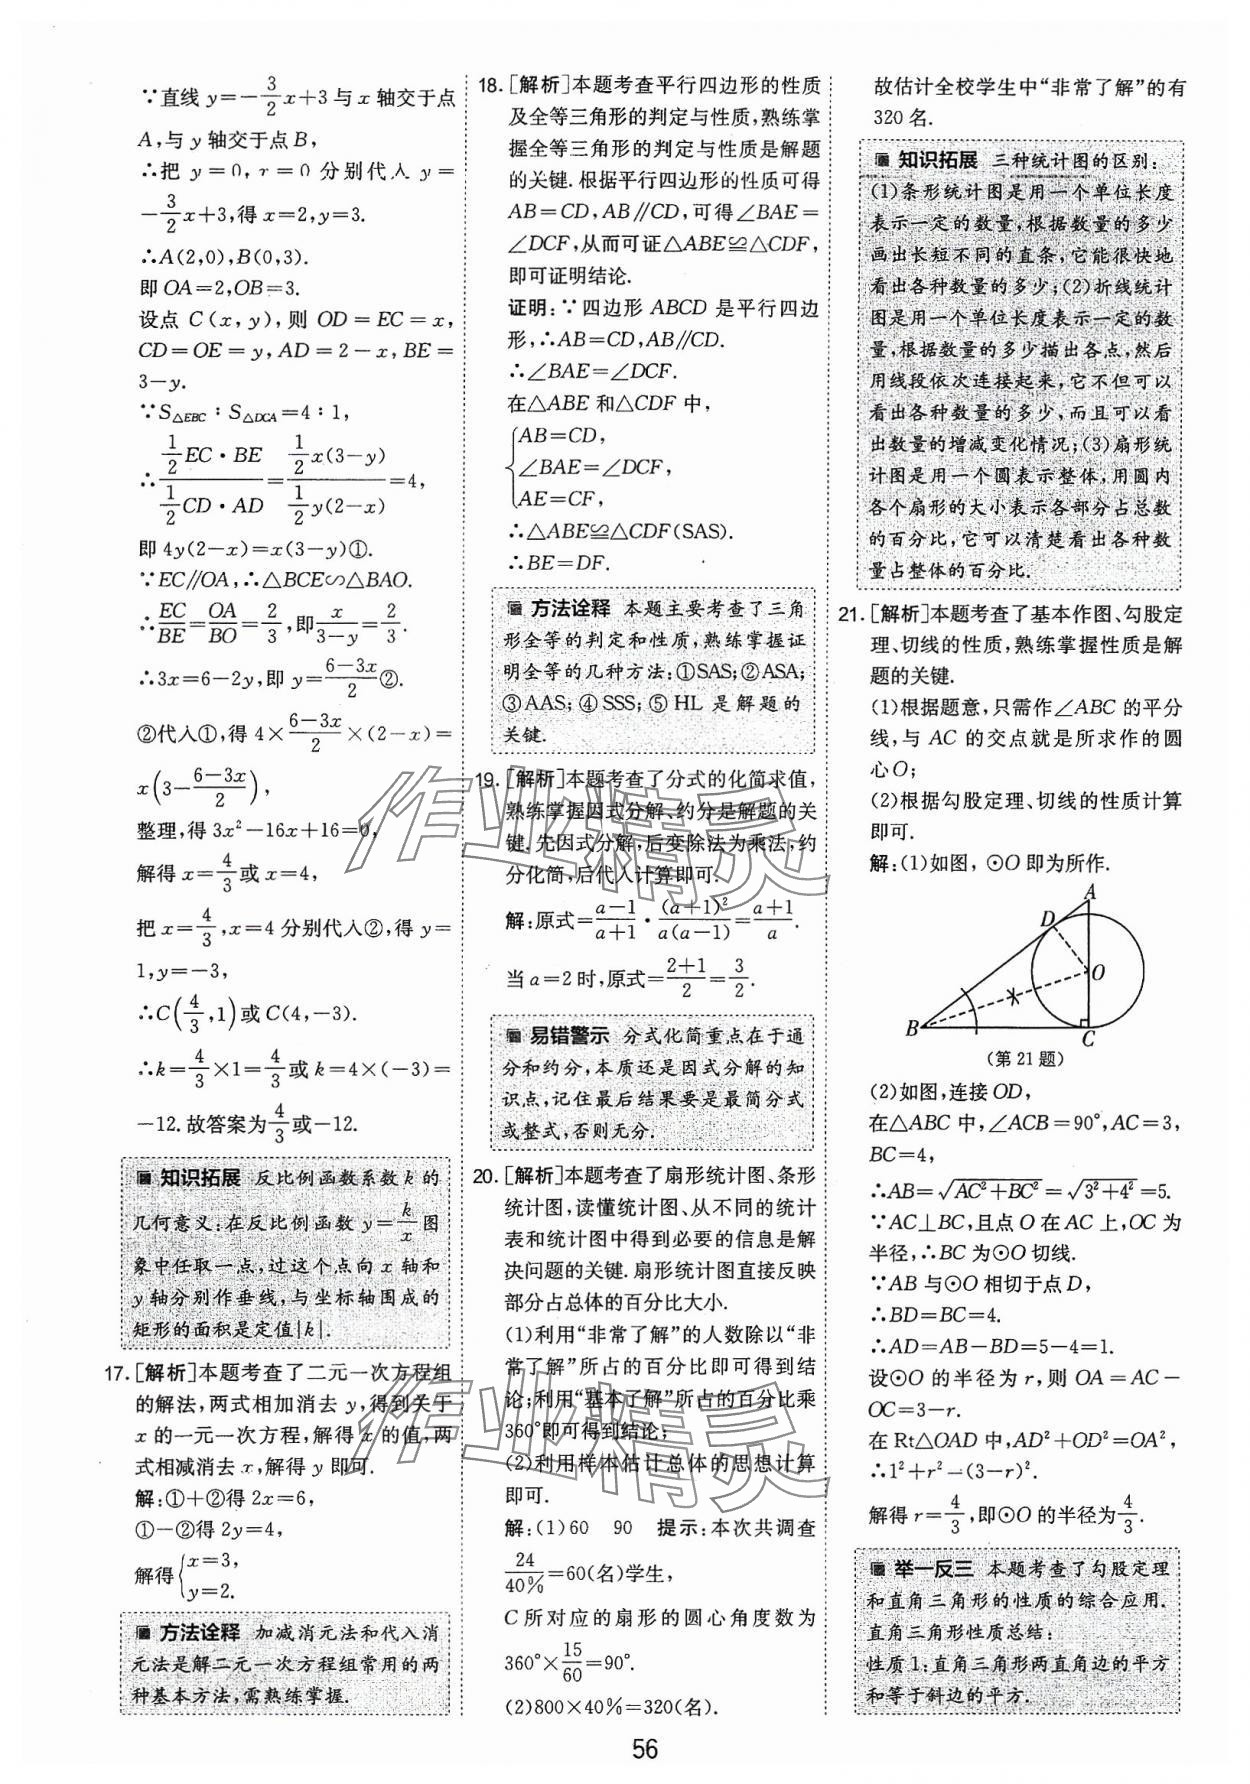 ∵直线 y=-3/2x+3 与 x 轴交于点
A,与 y 轴交于点 B,
∴把 y=0,r=0 分别代入 y=
-3/2x+3,得 x=2,y=3.
∴A(2,0),B(0,3).
即 OA=2,OB=3.
设点 C(x,y),则 OD=EC=x,
CD=OE=y,AD=2-x,BE=
3-y.
∵S△EBC∶S△DCA=4∶1,
∴(1/2EC·BE)/(1/2CD·AD)=(1/2x(3-y))/(1/2y(2-x))=4,
即 4y(2-x)=x(3-y)①.
∵EC∥OA,∴△BCE∽△BAO.
∴EC/BE=OA/BO=2/3,即x/(3-y)=2/3.
∴3x=6-2y,即 y=(6-3x)/2②.
②代入①,得 4×(6-3x)/2×(2-x)=
x(3-(6-3x)/2),
整理,得 3x²-16x+16=0,
解得 x=4/3或 x=4,
把 x=4/3,x=4 分别代入②,得 y=
1,y=-3,
∴C(4/3,1)或 C(4,-3).
∴k=4/3×1=4/3或 k=4×(-3)=
-12.故答案为4/3或-12.
知识拓展 反比例函数系数 k 的
几何意义:在反比例函数 y=k/x图
象中任取一点,过这个点向 x 轴和
y 轴分别作垂线,与坐标轴围成的
矩形的面积是定值|k|.
17.[解析]本题考查了二元一次方程组
的解法,两式相加消去 y,得到关于
x 的一元一次方程,解得 x 的值,两
式相减消去 x,解得 y 即可.
解:①+②得 2x=6,
①-②得 2y=4,
解得{x=3,
y=2.
方法诠释 加减消元法和代入消
元法是解二元一次方程组常用的两
种基本方法,需熟练掌握.
18.[解析]本题考查平行四边形的性质
及全等三角形的判定与性质,熟练掌
握全等三角形的判定与性质是解题
的关键.根据平行四边形的性质可得
AB=CD,AB∥CD,可得∠BAE=
∠DCF,从而可证△ABE≌△CDF,
即可证明结论.
证明:∵四边形 ABCD 是平行四边
形,∴AB=CD,AB∥CD.
∴∠BAE=∠DCF.
在△ABE 和△CDF 中,
{AB=CD,
∠BAE=∠DCF,
AE=CF,
∴△ABE≌△CDF(SAS).
∴BE=DF.
方法诠释 本题主要考查了三角
形全等的判定和性质,熟练掌握证
明全等的几种方法:①SAS;②ASA;
③AAS;④SSS;⑤HL 是解题的
关键.
19.[解析]本题考查了分式的化简求值,
熟练掌握因式分解、约分是解题的关
键.先因式分解,后变除法为乘法,约
分化简,后代入计算即可.
解:原式=(a-1)/(a+1)·(a+1)²/(a(a-1))=(a+1)/a.
当 a=2 时,原式=(2+1)/2=3/2.
易错警示 分式化简重点在于通
分和约分,本质还是因式分解的知
识点,记住最后结果要是最简分式
或整式,否则无分.
20.[解析]本题考查了扇形统计图、条形
统计图,读懂统计图、从不同的统计
表和统计图中得到必要的信息是解
决问题的关键.扇形统计图直接反映
部分占总体的百分比大小.
(1)利用“非常了解”的人数除以“非
常了解”所占的百分比即可得到结
论;利用“基本了解”所占的百分比乘
360°即可得到结论;
(2)利用样本估计总体的思想计算
即可.
解:(1)60 90 提示:本次共调查
24/40%=60(名)学生,
C 所对应的扇形的圆心角度数为
360°×15/60=90°.
(2)800×40%=320(名).
故估计全校学生中“非常了解”的有
320 名.
知识拓展 三种统计图的区别:
(1)条形统计图是用一个单位长度
表示一定的数量,根据数量的多少
画出长短不同的直条,它能很快地
看出各种数量的多少;(2)折线统计
图是用一个单位长度表示一定的数
量,根据数量的多少描出各点,然后
用线段依次连接起来,它不但可以
看出各种数量的多少,而且可以看
出数量的增减变化情况;(3)扇形统
计图是用一个圆表示整体,用圆内
各个扇形的大小表示各部分占总数
的百分比,它可以清楚看出各种数
量占整体的百分比.
21.[解析]本题考查了基本作图、勾股定
理、切线的性质,熟练掌握性质是解
题的关键.
(1)根据题意,只需作∠ABC 的平分
线,与 AC 的交点就是所求作的圆
心 O;
(2)根据勾股定理、切线的性质计算
即可.
解:(1)如图,⊙O 即为所作.
A
D
O
B
C
(第 21 题)
(2)如图,连接 OD,
在△ABC 中,∠ACB=90°,AC=3,
BC=4,
∴AB=√(AC²+BC²)=√(3²+4²)=5.
∵AC⊥BC,且点 O 在 AC 上,OC 为
半径,∴BC 为⊙O 切线.
∵AB 与⊙O 相切于点 D,
∴BD=BC=4.
∴AD=AB-BD=5-4=1.
设⊙O 的半径为 r,则 OA=AC-
OC=3-r.
在 Rt△OAD 中,AD²+OD²=OA²,
∴1²+r²=(3-r)².
解得 r=4/3,即⊙O 的半径为4/3.
举一反三 本题考查了勾股定理
和直角三角形的性质的综合应用.
直角三角形性质总结:
性质 1:直角三角形两直角边的平方
和等于斜边的平方.
作业精灵
作业精灵
56